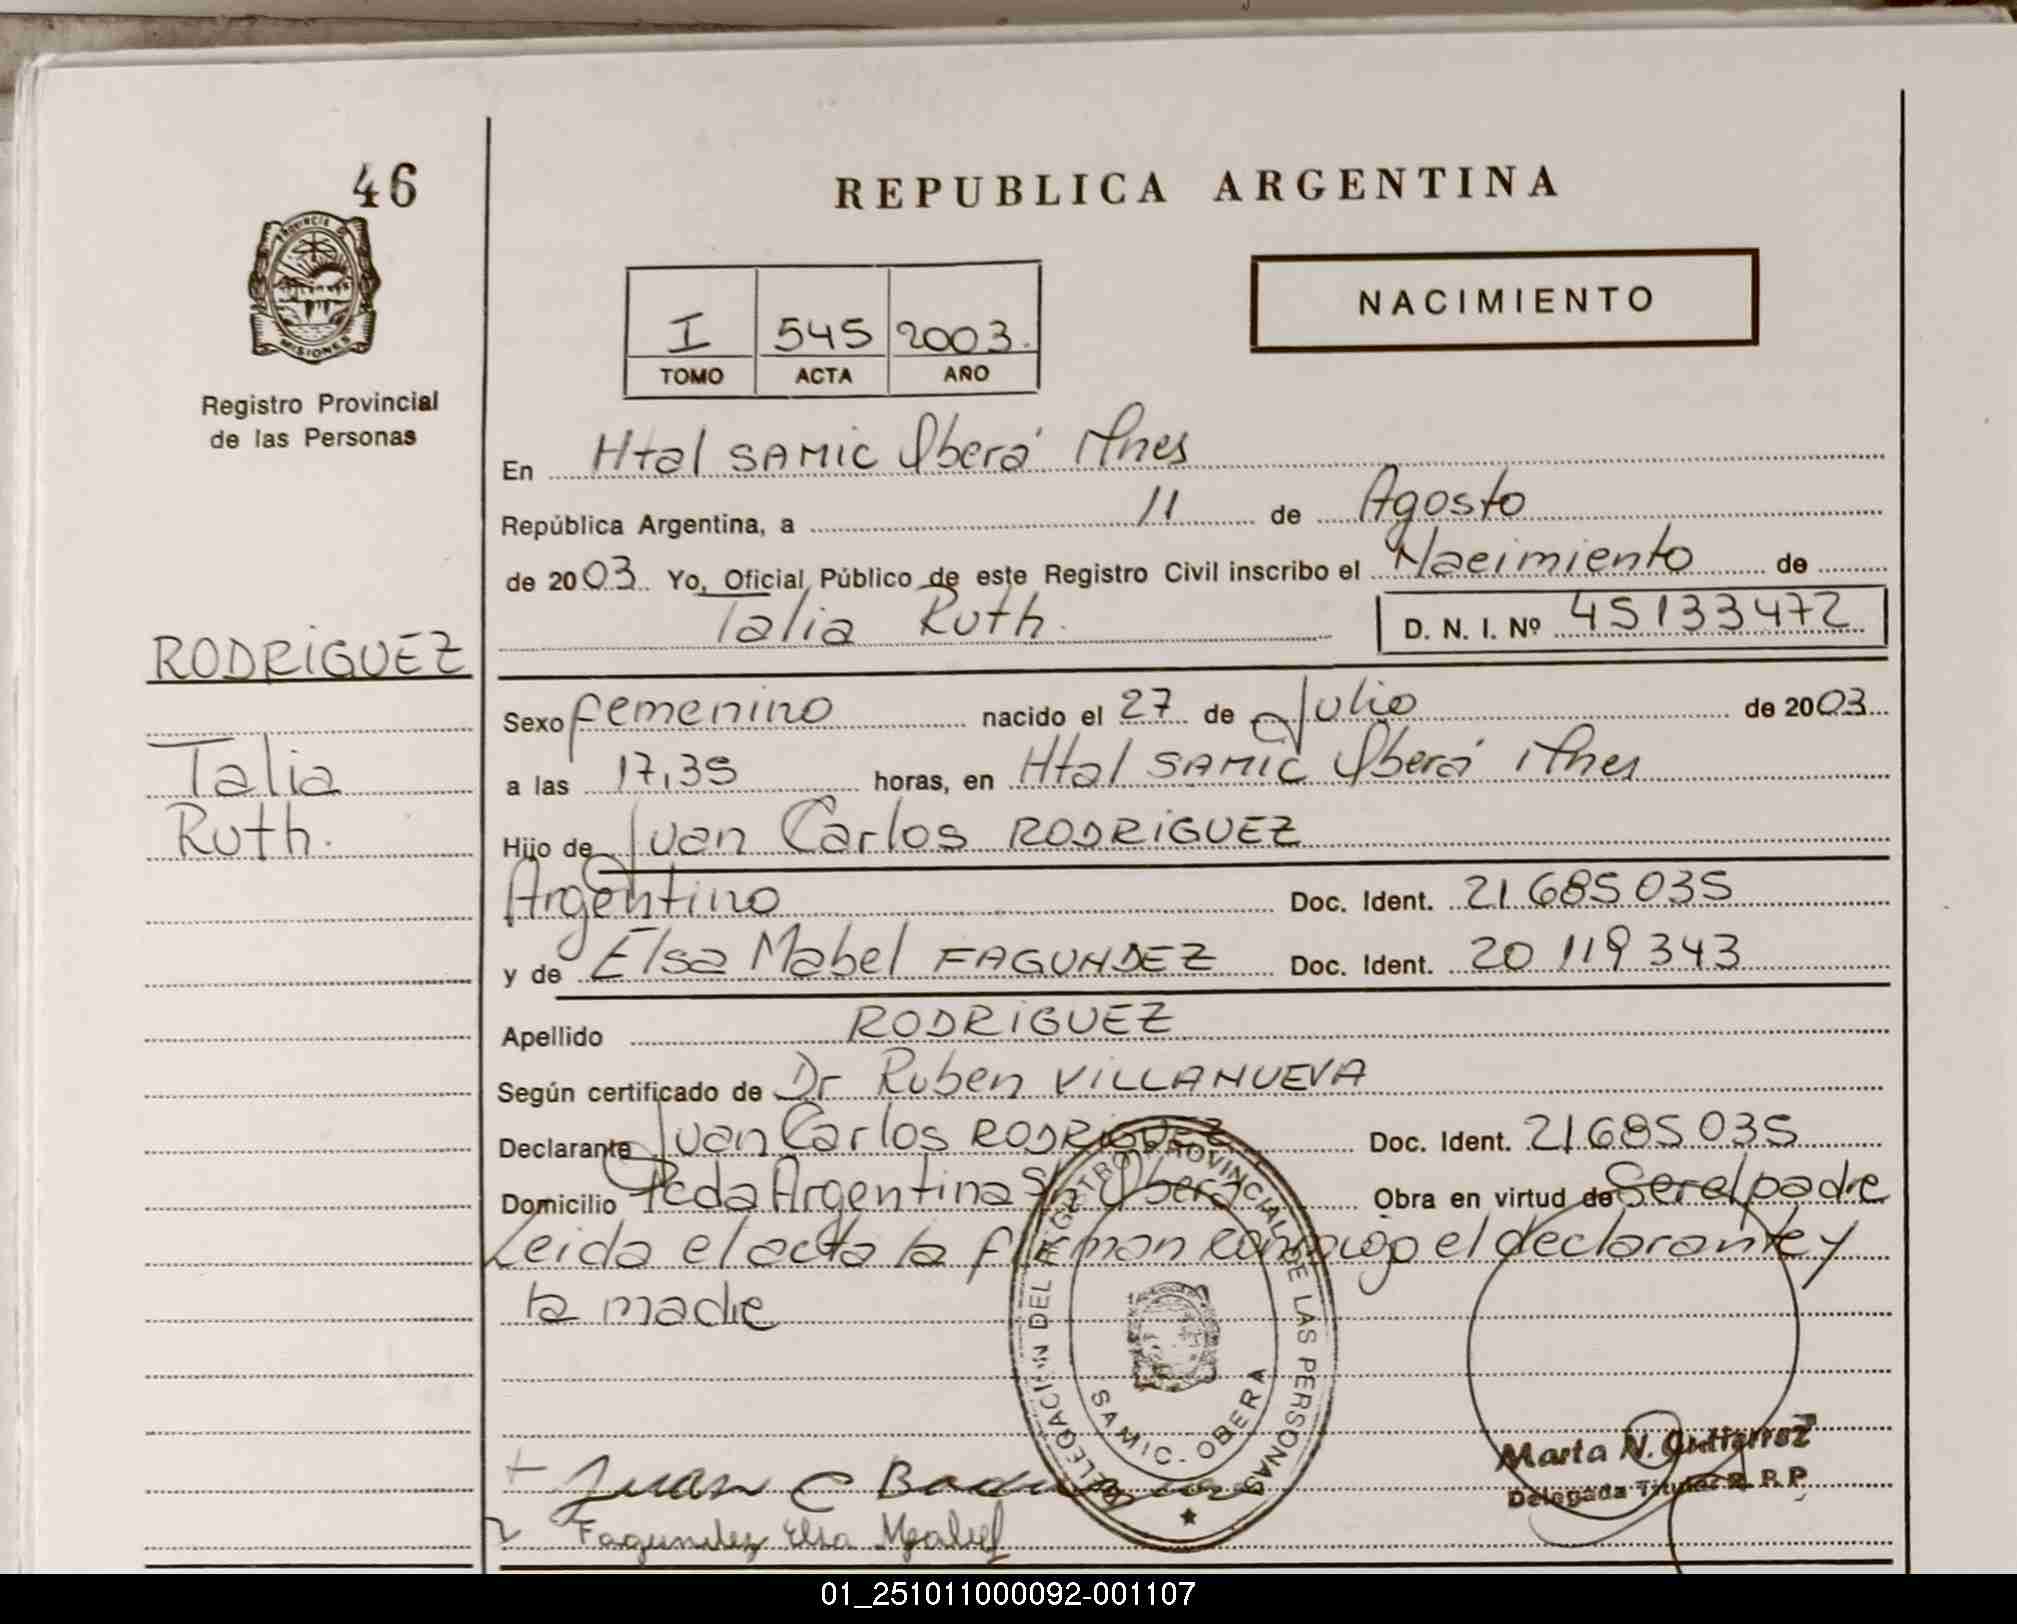 46
PROVINCIA DE
MISIONES
Registro Provincial
de las Personas
REPUBLICA ARGENTINA
I 545 2003.
TOMO ACTA AÑO
NACIMIENTO
En Htal SAMIC Oberá Mnes
República Argentina, a 11 de Agosto
de 2003 Yo, Oficial Público de este Registro Civil inscribo el Nacimiento de
Talia Ruth. D. N. I. Nº 45133472
RODRIGUEZ
Talia
Ruth.
Sexo femenino nacido el 27 de Julio de 2003
a las 17,35 horas, en Htal SAMIC Oberá Mnes
Hijo de Juan Carlos RODRIGUEZ
Argentino Doc. Ident. 21685035
y de Elsa Mabel FAGUNDEZ Doc. Ident. 20 119 343
Apellido RODRIGUEZ
Según certificado de Dr Ruben VILLANUEVA
Declarante Juan Carlos RODRIGUEZ Doc. Ident. 21685035
Domicilio Pcda Argentina S/n Oberá Obra en virtud de Ser el padre
Leida el acta la firman conmigo el declarante y
la madre
DELEGACION DEL REGISTRO PROVINCIAL DE LAS PERSONAS
SAMIC. OBERA
Juan C Rodriguez
Fagundez Elsa Mabel
Marta N. Gutierrez
Delegada Titular R. P. P.
01_251011000092-001107